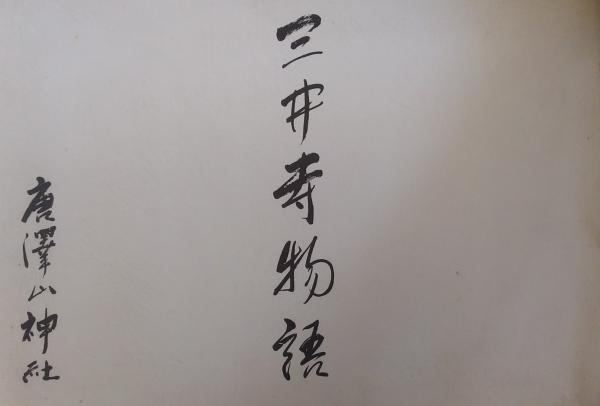 三井寺物語
唐澤山神社